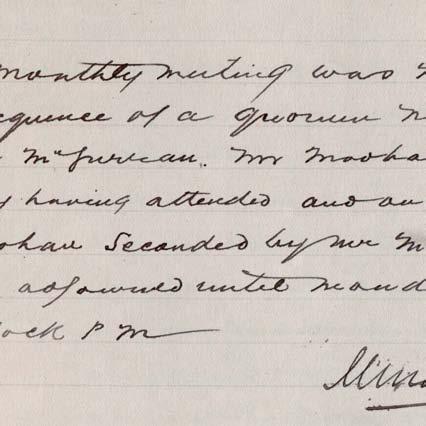 Monthly meeting was
quence of a quorum
McGurran. Mr Moohan
having attended and an
ohan Seconded by Mr M
adjourned until Mond
ock P M
Minu